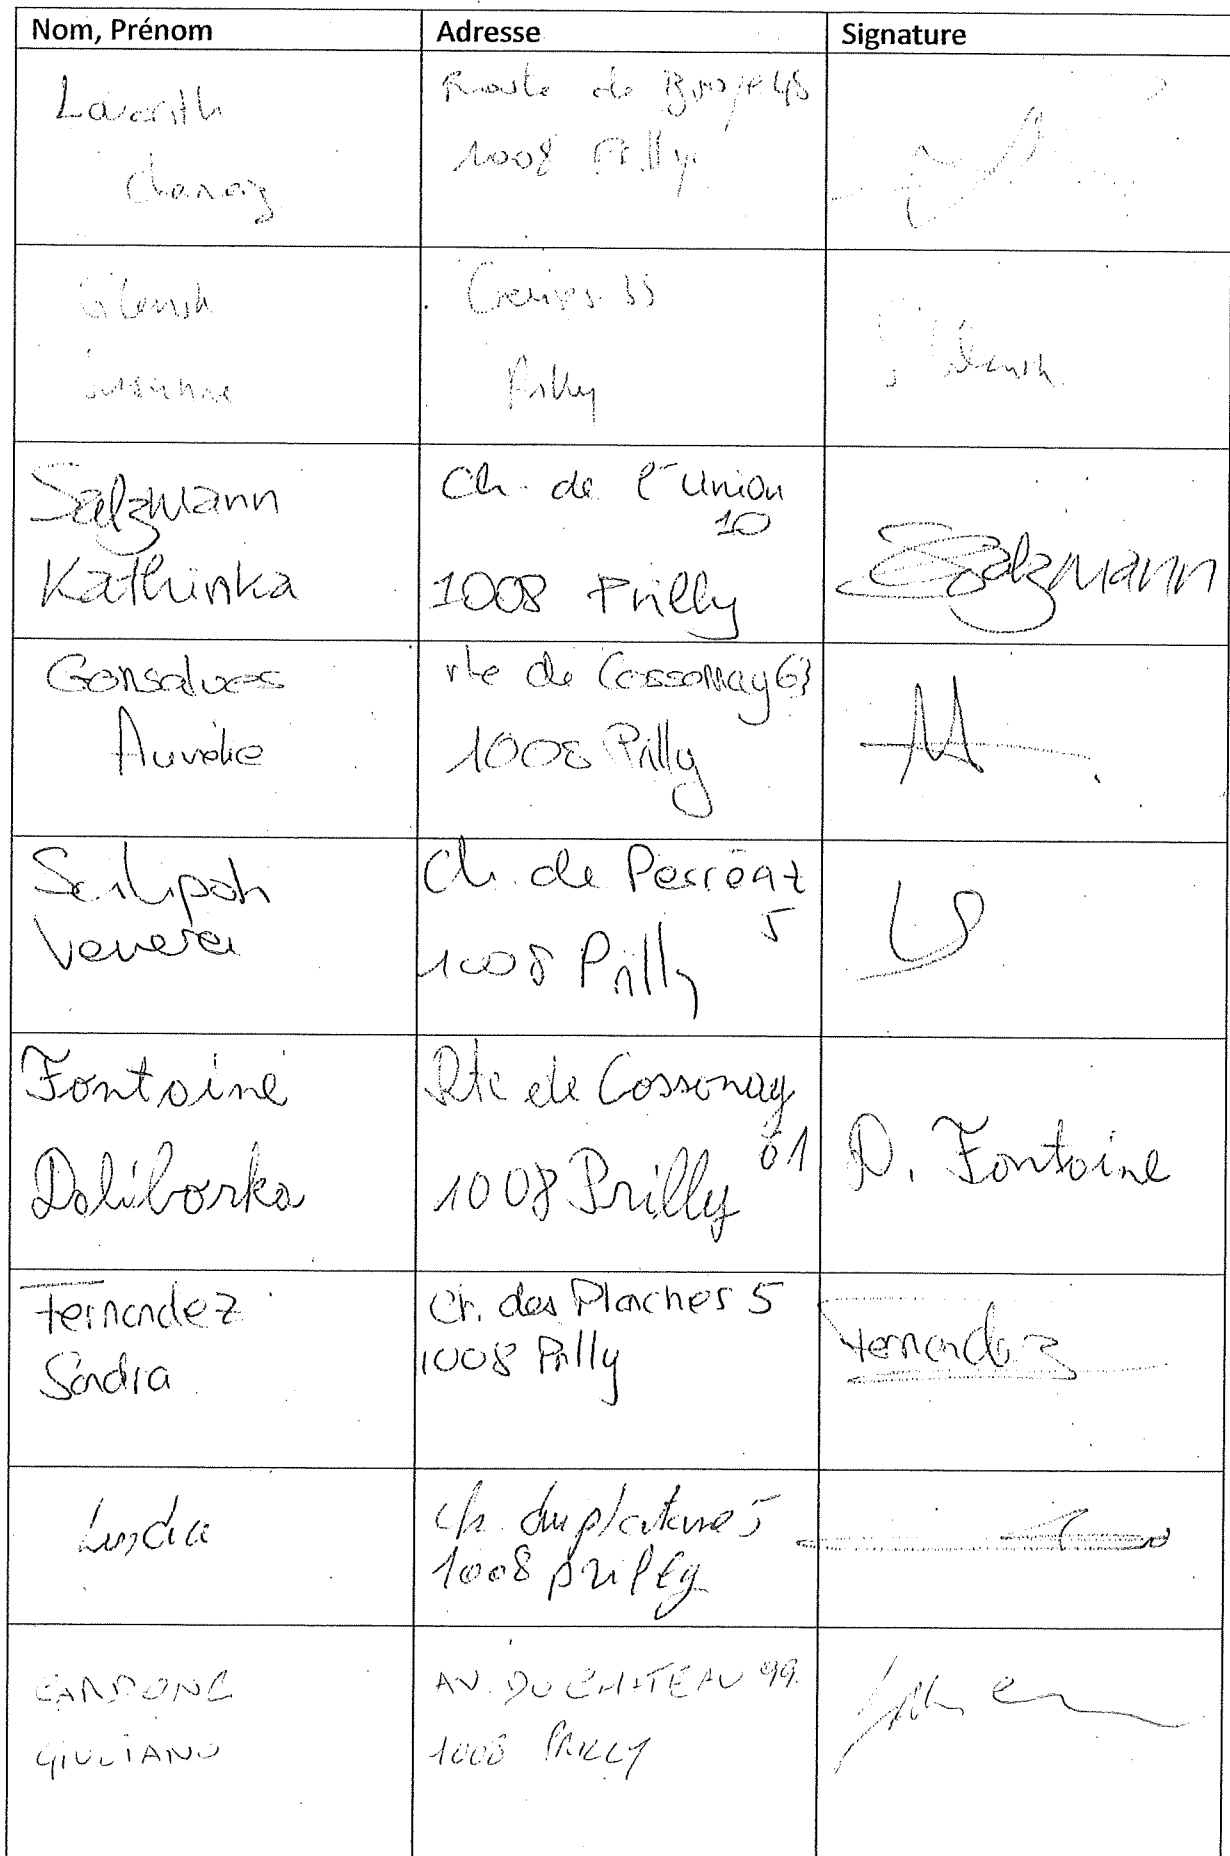 Nom, Prénom
Adresse
Signature
Route de
1008 Prilly
Prilly
Salzmann
Kathinka
Ch. de l'Union
10
1008 Prilly
Salzmann
Gonsalves
Aurélie
rte de Cossonay 63
1008 Prilly
Venera
Ch. de Perréaz
5
1008 Prilly
Fontaine
Daliborka
Rte de Cossonay
61
1008 Prilly
D. Fontaine
Fernandez
Sandra
Ch. des Planches 5
1008 Prilly
Fernandez
Ch. du platane 5
1008 prilly
CARDONE
GIULIANO
AV. DU CHATEAU 99.
1008 PRILLY